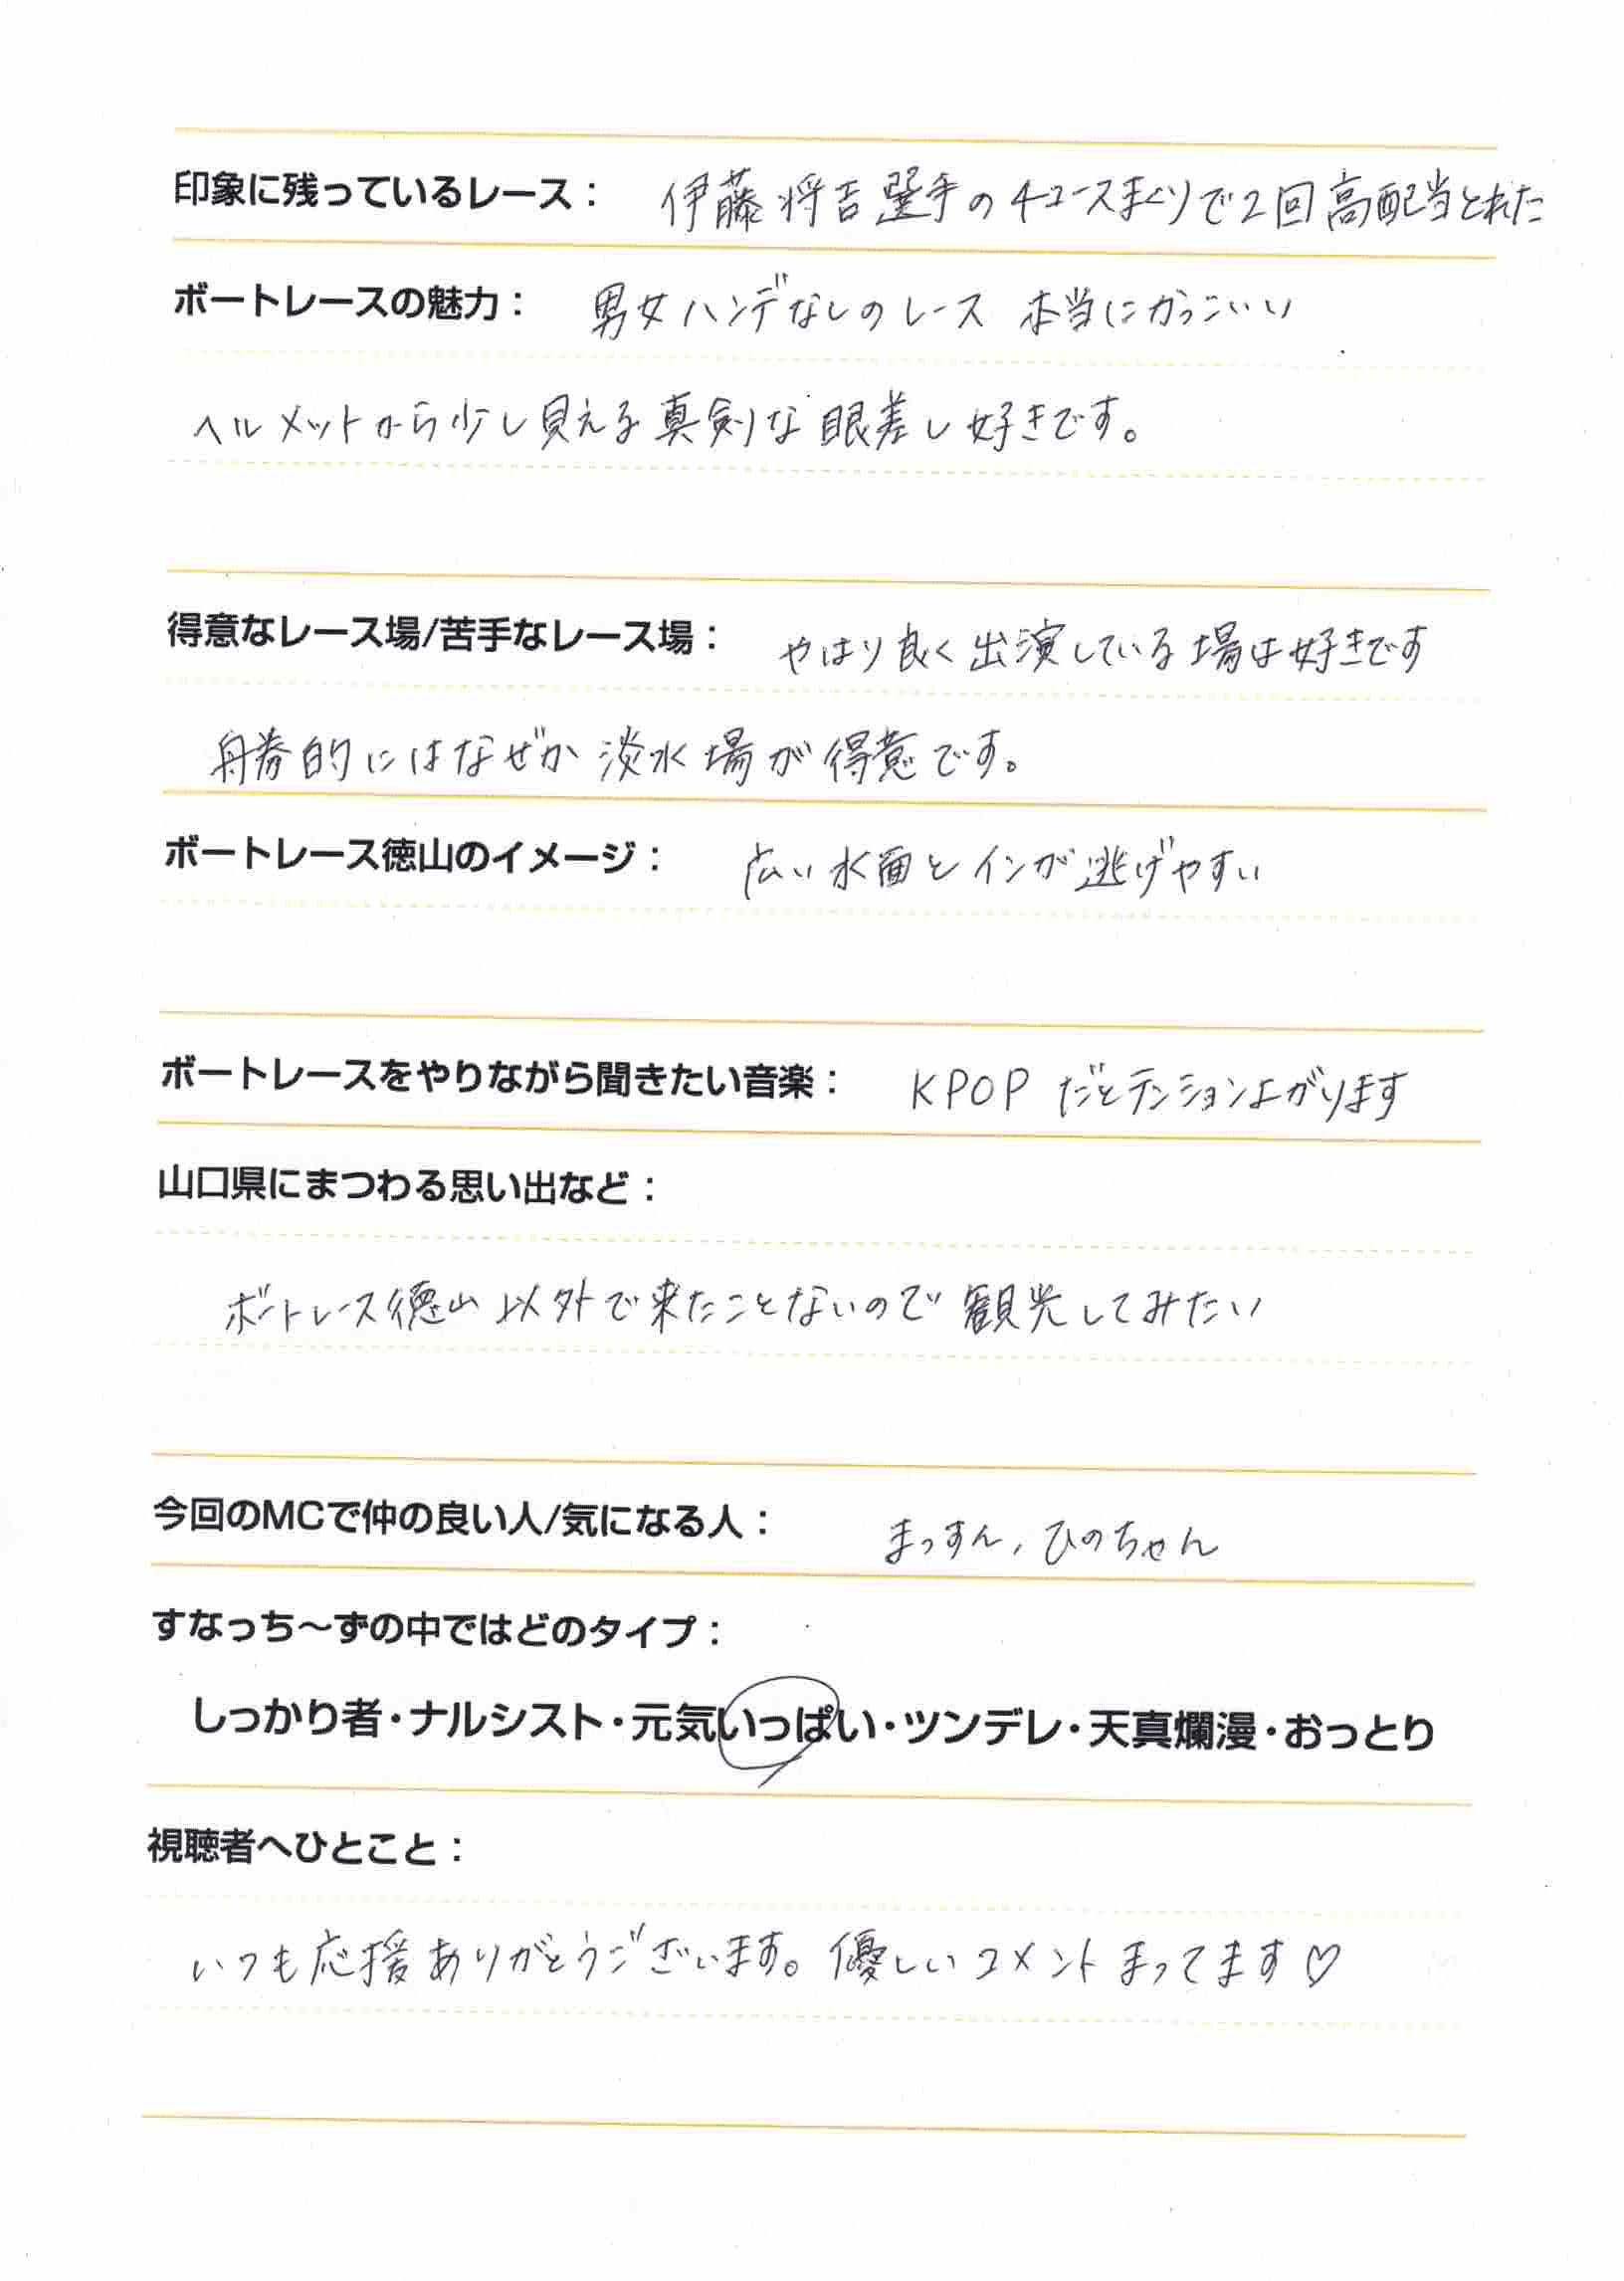 印象に残っているレース： 伊藤将吉選手の4コースまくりで2回高配当とれた
ボートレースの魅力： 男女ハンデなしのレース 本当にかっこいい
ヘルメットから少し見える真剣な眼差し好きです。
得意なレース場/苦手なレース場： やはり良く出演している場は好きです
舟券的にはなぜか淡水場が得意です。
ボートレース徳山のイメージ： 広い水面とインが逃げやすい
ボートレースをやりながら聞きたい音楽： KPOPだとテンション上がります
山口県にまつわる思い出など：
ボートレース徳山以外で来たことないので観光してみたい
今回のMCで仲の良い人/気になる人： まっすん、ひのちゃん
すなっち〜ずの中ではどのタイプ：
しっかり者・ナルシスト・元気いっぱい・ツンデレ・天真爛漫・おっとり
視聴者へひとこと：
いつも応援ありがとうございます。優しいコメントまってます♡